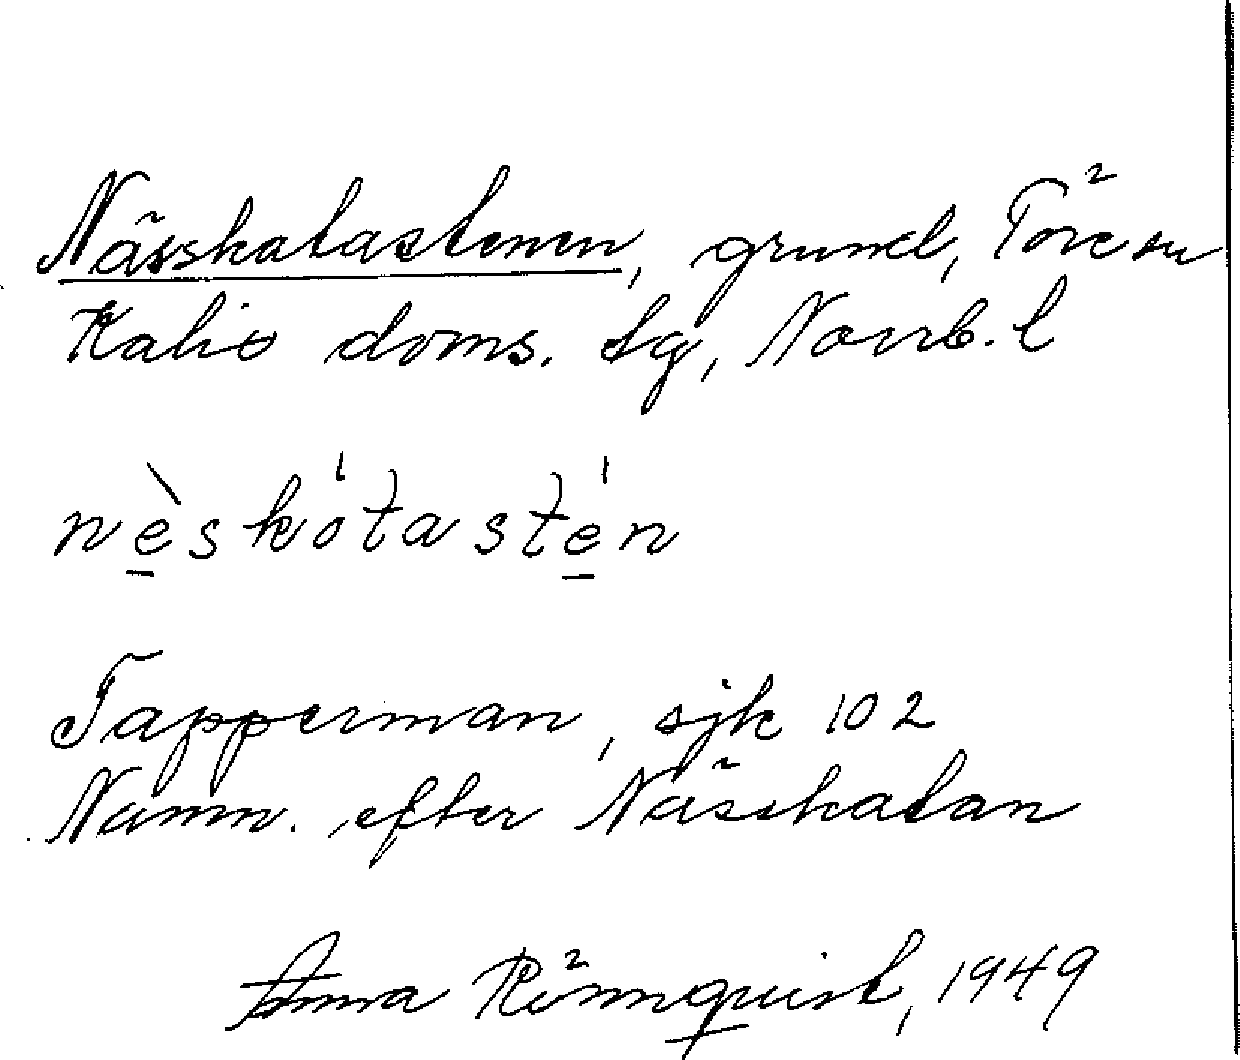 Nässkatastenen, grund, Töre sn
Kalix doms. lg, Norrb. l
nèskótastén
Tapperman, sjk 102
Namn. efter Nässkatan
Anna Rönnquist, 1949